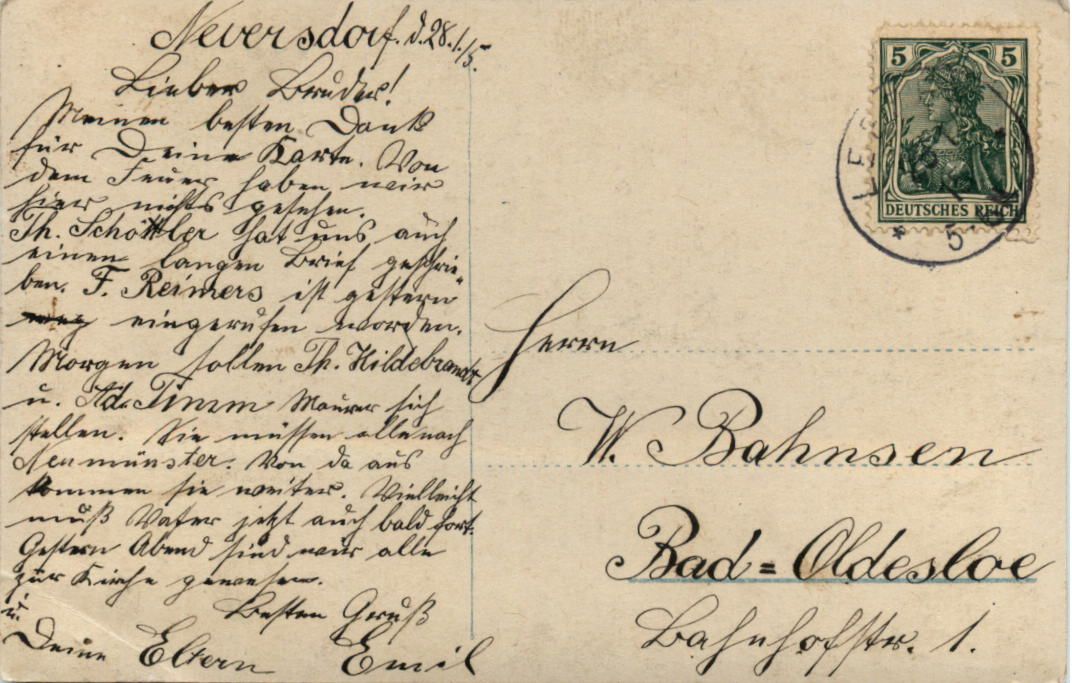 Neversdorf. d. 28.1.15.
Lieber Bruder!
Meinen besten Dank
für Deine Karte. Von
dem Feuer haben wir
hier nichts gesehen.
Th. Schöttler hat uns auch
einen langen Brief geschrie-
ben. F. Reimers ist gestern
weg eingerufen worden.
Morgen sollen Th. Hildebrandt
u. Ad. Timm Maurer sich
stellen. Sie müssen alle nach
Neumünster. Von da aus
kommen sie weiter. Vielleicht
muß Vater jetzt auch bald fort.
Gestern Abend sind wir alle
zur Kirche gewesen.
Besten Gruß
u.
Deine Eltern Emil
5 5
DEUTSCHES REICH
Herrn
W. Bahnsen
Bad=Oldesloe
Bahnhofstr. 1.